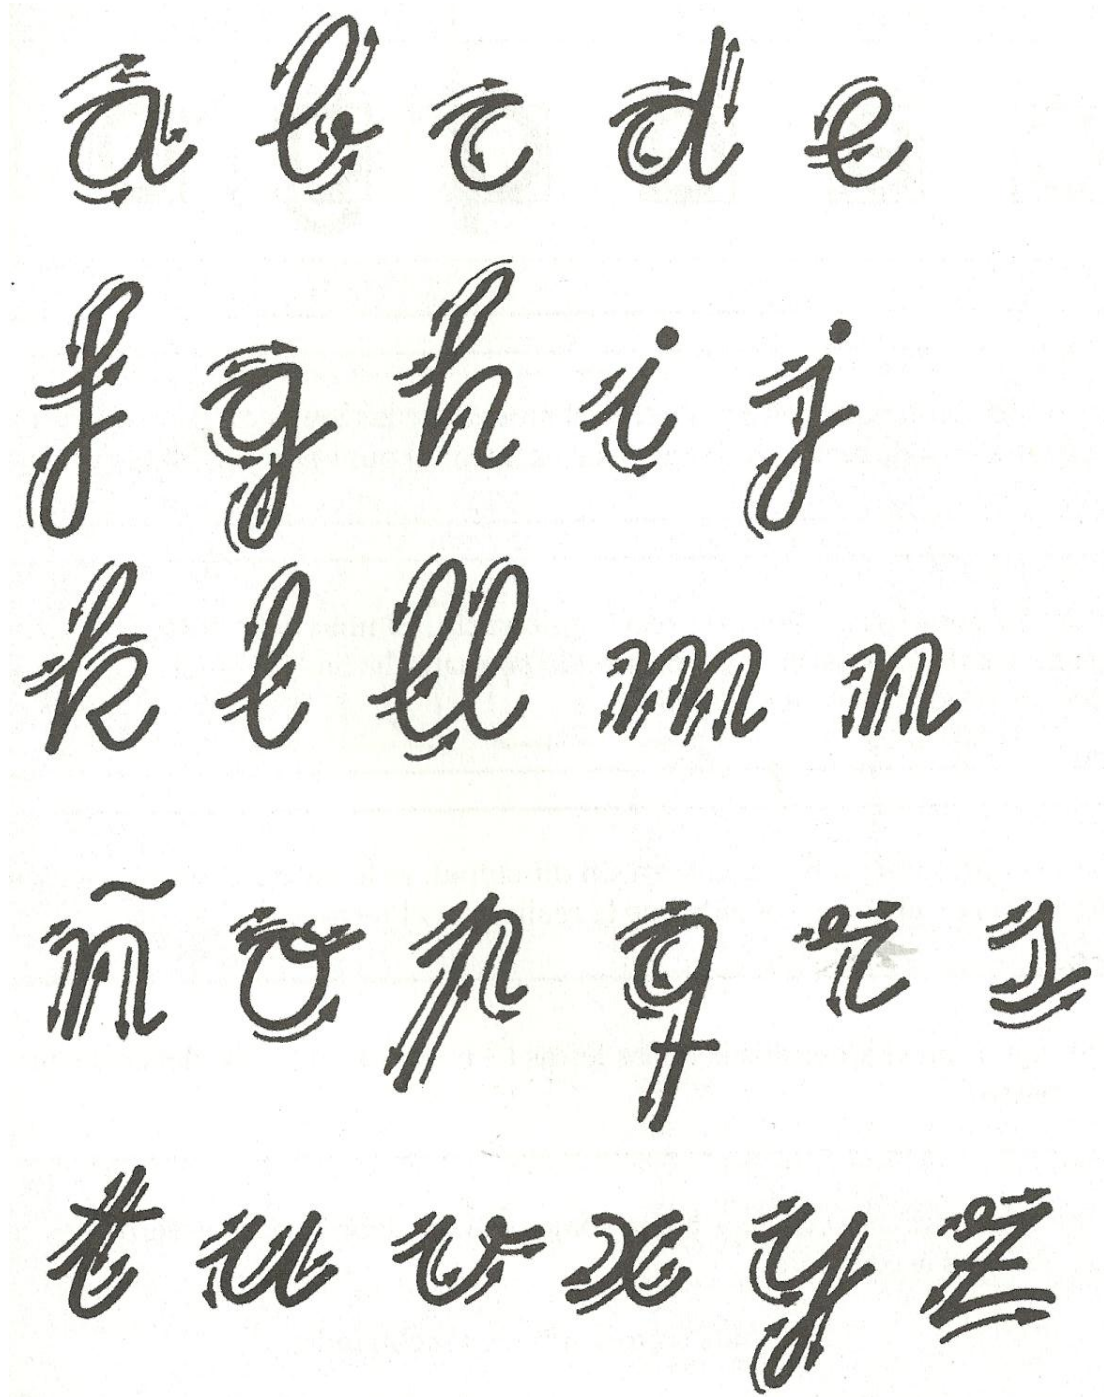 a b c d e
f g h i j
k l ll m n
ñ o p q r s
t u v x y z